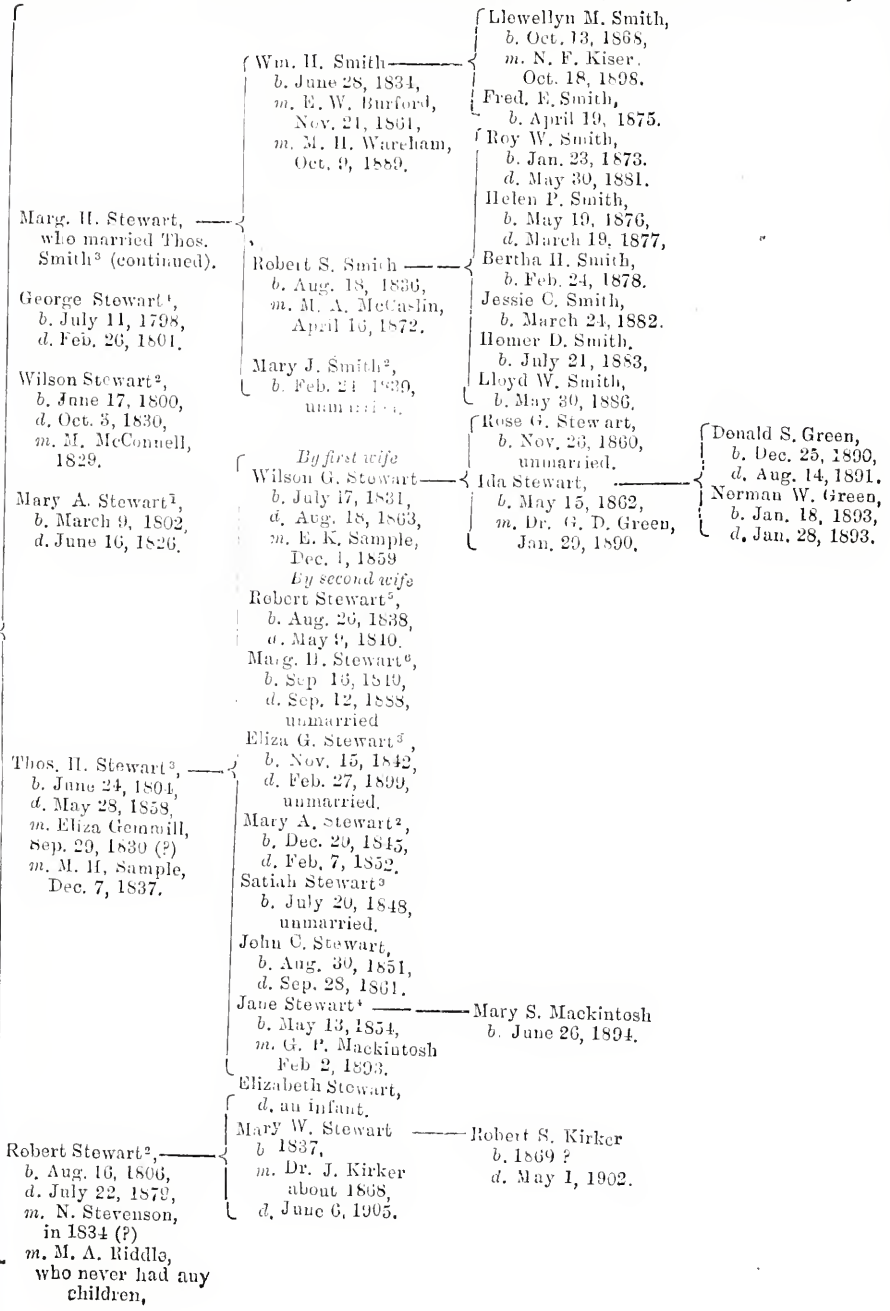 Marg. H. Stewart,
who married Thos.
Smith³ (continued).
George Stewart¹,
b. July 11, 1798,
d. Feb. 26, 1801.
Wilson Stewart²,
b. June 17, 1800,
d. Oct. 5, 1830,
m. M. McConnell,
1829.
Mary A. Stewart¹,
b. March 9, 1802,
d. June 16, 1826.
Thos. H. Stewart³,
b. June 24, 1804,
d. May 28, 1858,
m. Eliza Gemmill,
Sep. 29, 1830 (?)
m. M. H. Sample,
Dec. 7, 1837.
Robert Stewart²,
b. Aug. 16, 1806,
d. July 22, 1879,
m. N. Stevenson,
in 1834 (?)
m. M. A. Riddle,
who never had any
children,
Wm. H. Smith
b. June 28, 1834,
m. E. W. Burford,
Nov. 21, 1861,
m. M. H. Wareham,
Oct. 9, 1889.
Robert S. Smith
b. Aug. 18, 1836,
m. M. A. McCaslin,
April 16, 1872.
Mary J. Smith²,
b. Feb. 21 1839,
By first wife
Wilson G. Stewart
b. July 17, 1831,
d. Aug. 18, 1863,
m. E. K. Sample,
Dec. 1, 1859
By second wife
Robert Stewart⁵,
b. Aug. 26, 1838,
d. May 9, 1840.
Marg. H. Stewart⁶,
b. Sep 16, 1840,
d. Sep. 12, 1888,
unmarried
Eliza G. Stewart³,
b. Nov. 15, 1842,
d. Feb. 27, 1899,
unmarried.
Mary A. Stewart²,
b. Dec. 20, 1845,
d. Feb. 7, 1852.
Satiah Stewart³
b. July 20, 1848,
unmarried.
John C. Stewart,
b. Aug. 30, 1851,
d. Sep. 28, 1861.
Jane Stewart⁴
b. May 13, 1854,
m. G. P. Mackintosh
Feb 2, 1893.
Elizabeth Stewart,
d. an infant.
Mary W. Stewart
b 1837,
m. Dr. J. Kirker
about 1868,
d. June 6, 1905.
Llewellyn M. Smith,
b. Oct. 13, 1868,
m. N. F. Kiser.
Oct. 18, 1898.
Fred. E. Smith,
b. April 19, 1875.
Roy W. Smith,
b. Jan. 23, 1873.
d. May 30, 1881.
Helen P. Smith,
b. May 19, 1876,
d. March 19, 1877,
Bertha H. Smith,
b. Feb. 24, 1878.
Jessie C. Smith,
b. March 24, 1882.
Homer D. Smith,
b. July 21, 1883,
Lloyd W. Smith,
b. May 30, 1886.
Rose G. Stewart,
b. Nov. 26, 1860,
unmarried.
Ida Stewart,
b. May 15, 1862,
m. Dr. G. D. Green,
Jan. 29, 1890.
Mary S. Mackintosh
b. June 26, 1894.
Robert S. Kirker
b. 1869 ?
d. May 1, 1902.
Donald S. Green,
b. Dec. 25, 1890,
d. Aug. 14, 1891.
Norman W. Green,
b. Jan. 18, 1893,
d. Jan. 28, 1893.